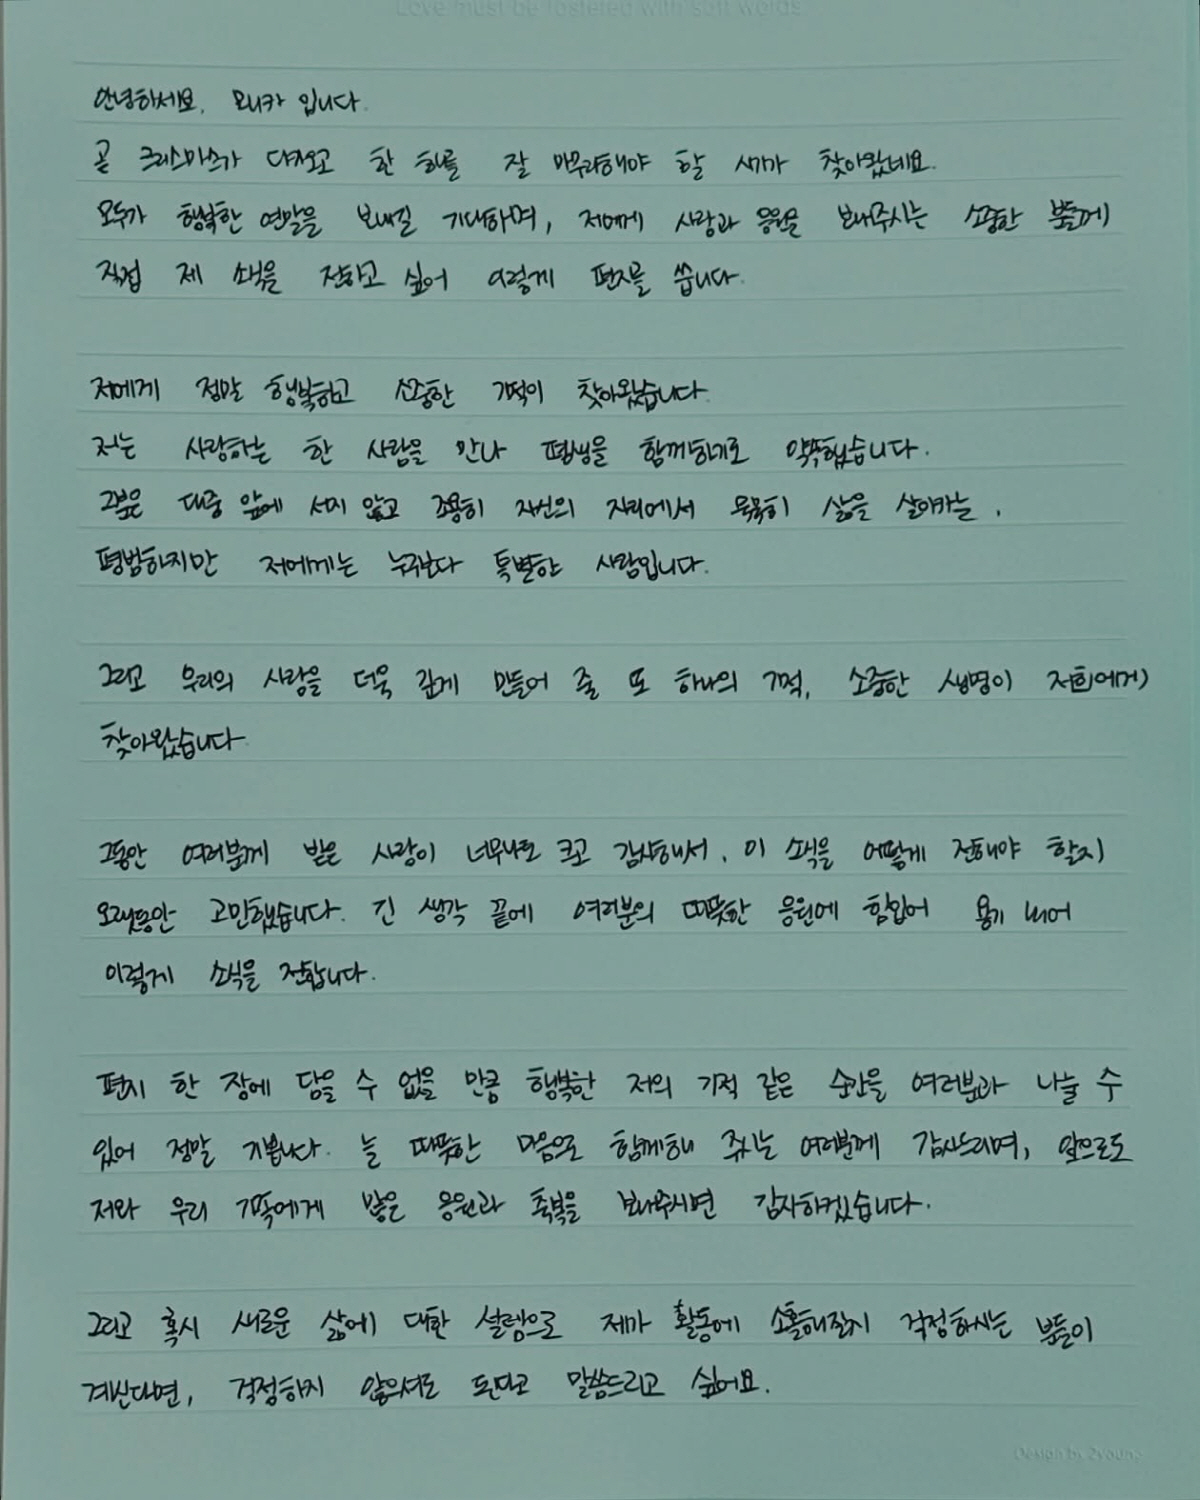 Love must be fostered with soft words
안녕하세요. 모니카 입니다.
곧 크리스마스가 다가오고 한 해를 잘 마무리해야 할 시기가 찾아왔네요.
모두가 행복한 연말을 보내길 기대하며, 저에게 사랑과 응원을 보내주시는 소중한 분들께
직접 제 소식을 전하고 싶어 이렇게 편지를 씁니다.
저에게 정말 행복하고 소중한 기적이 찾아왔습니다.
저는 사랑하는 한 사람을 만나 평생을 함께하기로 약속했습니다.
그분은 대중 앞에 서지 않고 조용히 자신의 자리에서 묵묵히 삶을 살아가는,
평범하지만 저에게는 누구보다 특별한 사람입니다.
그리고 우리의 사랑을 더욱 깊게 만들어 줄 또 하나의 기적, 소중한 생명이 저희에게
찾아왔습니다.
그동안 여러분께 받은 사랑이 너무나도 크고 감사해서, 이 소식을 어떻게 전해야 할지
오랫동안 고민했습니다. 긴 생각 끝에 여러분의 따뜻한 응원에 힘입어 용기 내어
이렇게 소식을 전합니다.
편지 한 장에 담을 수 없을 만큼 행복한 저의 기적 같은 순간을 여러분과 나눌 수
있어 정말 기쁩니다. 늘 따뜻한 마음으로 함께해 주시는 여러분께 감사드리며, 앞으로도
저와 우리 가족에게 많은 응원과 축복을 보내주시면 감사하겠습니다.
그리고 혹시 새로운 삶에 대한 설렘으로 제가 활동에 소홀해질지 걱정하시는 분들이
계신다면, 걱정하지 않으셔도 된다고 말씀드리고 싶어요.
Design by 2young